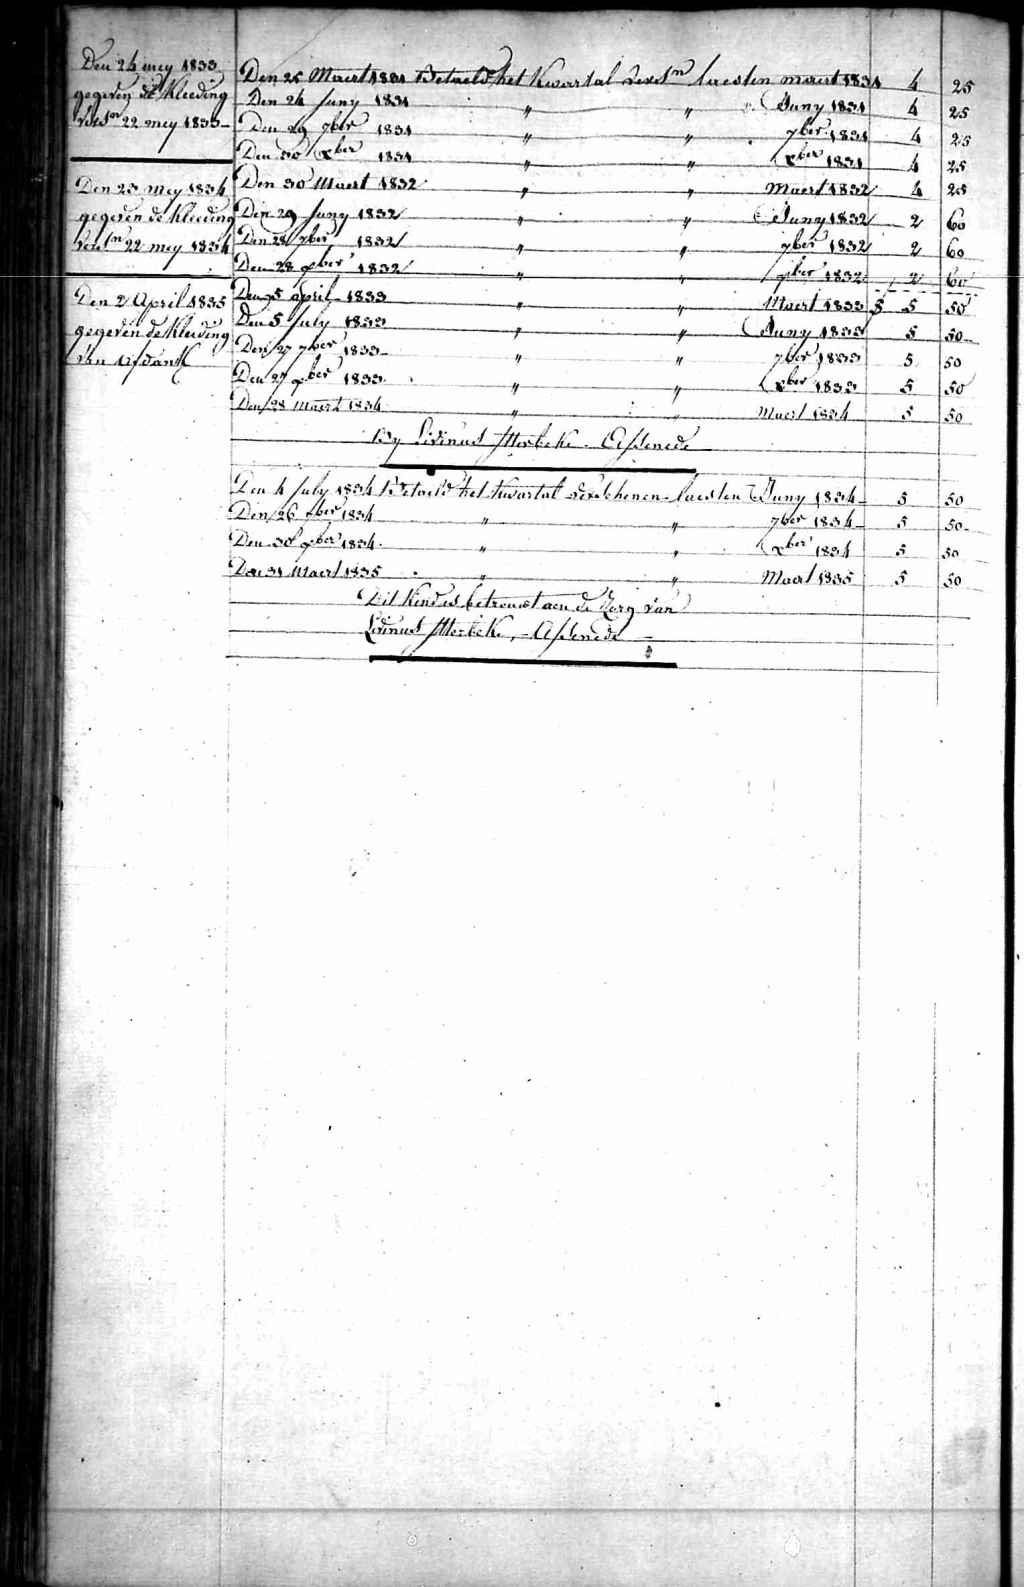 Den 24 mey 1833
gegeven de Kleeding
versn 22 mey 1833
Den 23 mey 1834
gegeven de Kleeding
versn 22 mey 1834
Den 2 April 1835
gegeven de Kleeding
van
Den 25 Maert 1831 Betaeld het Kwartal versn laesten maert 1831 4 25
Den 24 Juny 1831 " " Juny 1831 4 25
Den 29 7ber 1831 " " 7ber 1831 4 25
Den 30 xber 1831 " " xber 1831 4 25
Den 30 Maert 1832 " " Maert 1832 4 25
Den 29 Juny 1832 " " Juny 1832 2 60
Den 28 7ber 1832 " " 7ber 1832 2 60
Den 28 xber 1832 " " xber 1832 2 60
Den 5 april 1833 " " Maert 1833 5 50
Den 5 July 1833 " " Juny 1833 5 50
Den 27 7ber 1833 " " 7ber 1833 5 50
Den 27 xber 1833 " " xber 1833 5 50
Den 28 Maert 1834 " " Maert 1834 5 50
by Livinus Itterbeke Assenede
Den 4 July 1834 Betaeld het Kwartal verschenen laesten Juny 1834 5 50
Den 26 7ber 1834 " " 7ber 1834 5 50
Den 30 xber 1834 " " xber 1834 5 50
Den 31 Maert 1835 " " Maert 1835 5 50
Dit Kind is betrouwt aen de Zorg van
Livinus Itterbeke, - Assenede